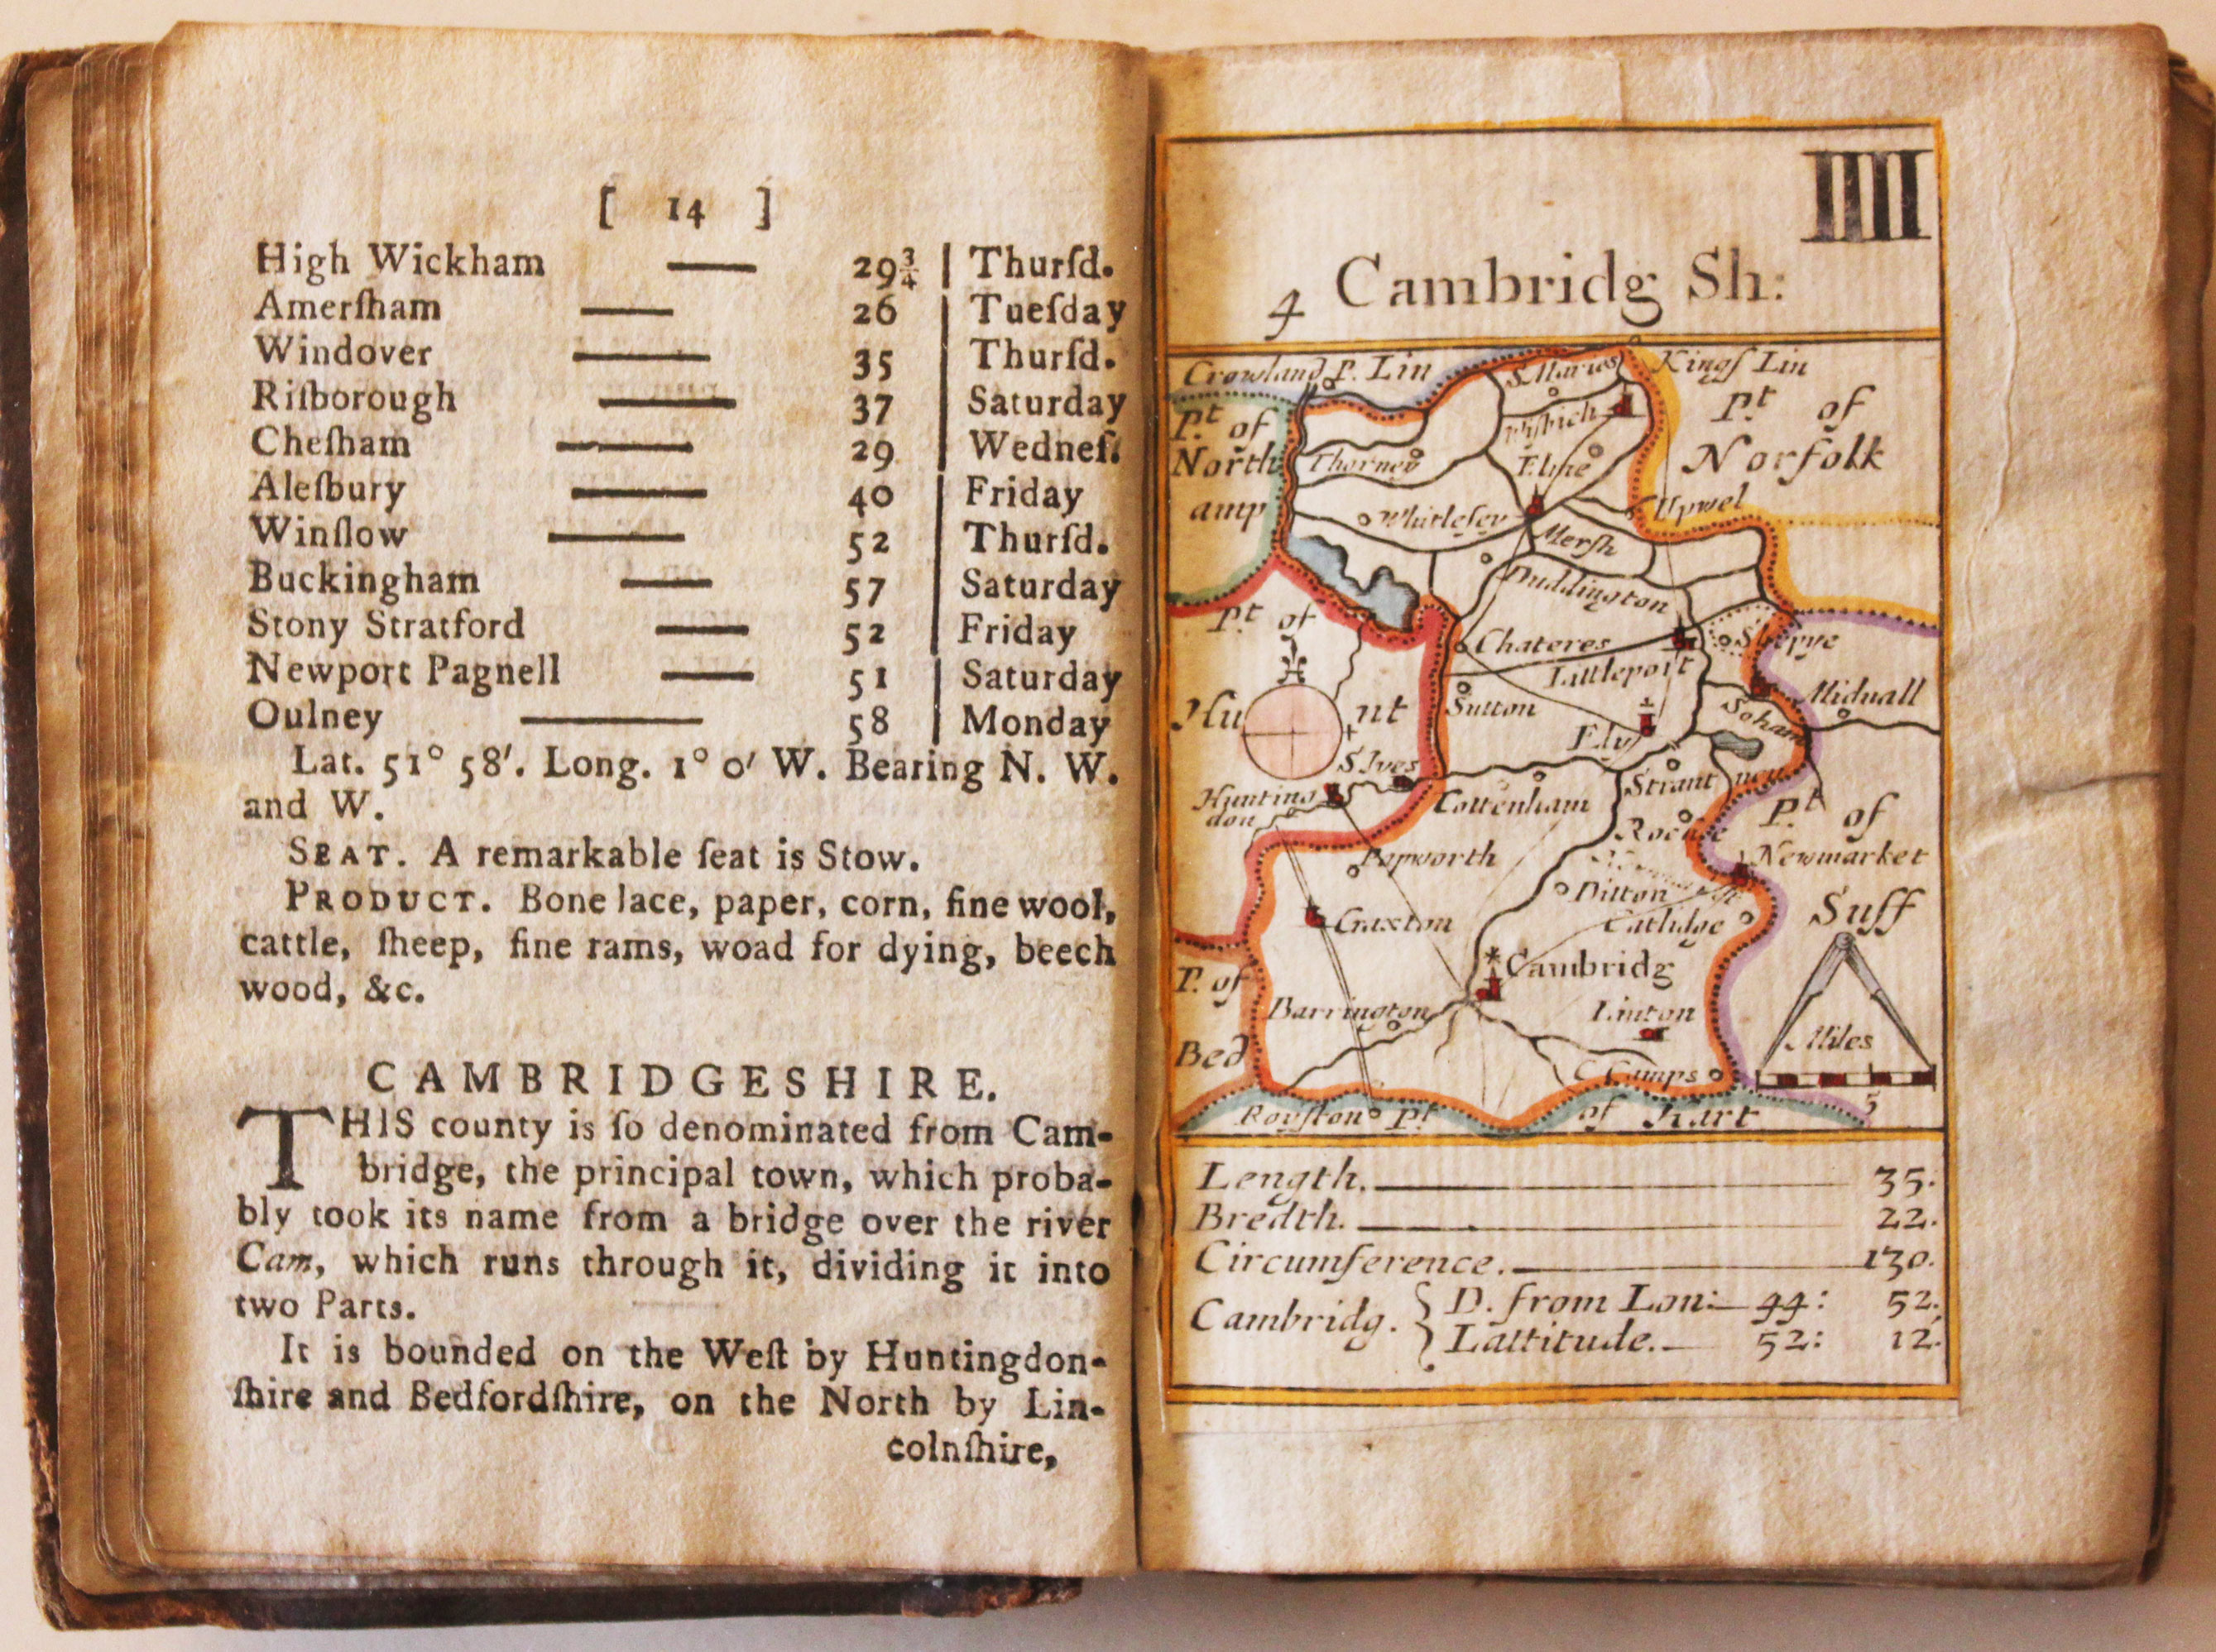 [ 14 ]
High Wickham — 29¾ | Thurſd.
Amerſham — 26 | Tueſday
Windover — 35 | Thurſd.
Riſborough — 37 | Saturday
Cheſham — 29 | Wedneſ.
Aleſbury — 40 | Friday
Winſlow — 52 | Thurſd.
Buckingham — 57 | Saturday
Stony Stratford — 52 | Friday
Newport Pagnell — 51 | Saturday
Oulney — 58 | Monday
Lat. 51° 58′. Long. 1° 0′ W. Bearing N. W.
and W.
SEAT. A remarkable ſeat is Stow.
PRODUCT. Bone lace, paper, corn, fine wool,
cattle, ſheep, fine rams, woad for dying, beech
wood, &c.
CAMBRIDGESHIRE.
THIS county is ſo denominated from Cam-
bridge, the principal town, which proba-
bly took its name from a bridge over the river
Cam, which runs through it, dividing it into
two Parts.
It is bounded on the Weſt by Huntingdon-
ſhire and Bedfordſhire, on the North by Lin-
colnſhire,
IIII
4 Cambridg Sh:
Crowland P. Lin
S. Maries
Kingſ Lin
Pt of
North
amp
Pt of
Norfolk
Wiſbich
Thorney
Elme
Whitleſey
Upwel
Merſh
Duddington
Pt of
Hu nt
Chateres
Littleport
Sutton
Midnall
Soham
Ely
S Ives
Hunting
don
Cottenham
Pt of
Suff
Newmarket
Papworth
Ditton
Catlidge
Caxton
Cambridg
P. of
Bed
Barrington
Linton
Miles
5
C Camps
Royſton Pt of Hart
Length. 35.
Bredth. 22.
Circumference. 130.
Cambridg. { D. from Lon: 44: 52.
Lattitude. 52: 12.